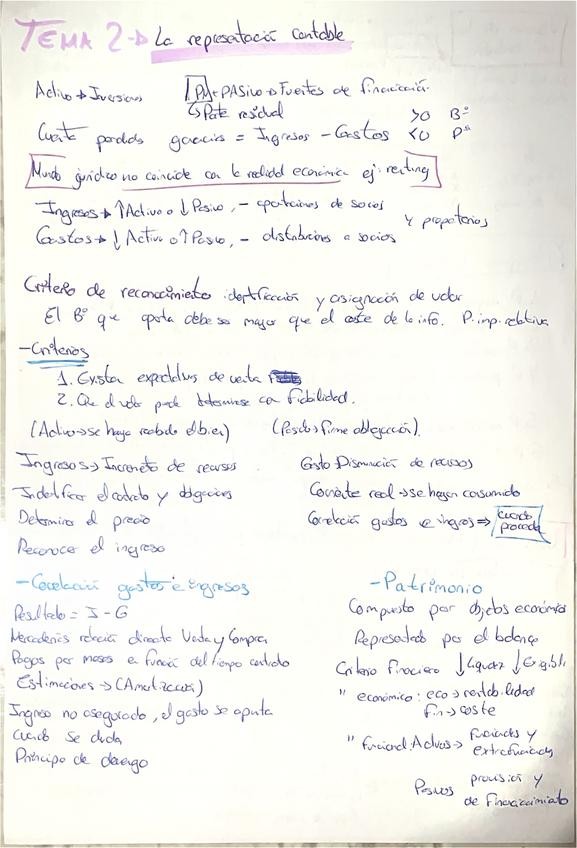 TEMA 2 → La representación contable
Activo → Inversiones PN + PASivo → Fuentes de financiación
↳ Parte residual
>0 Bº
Cuenta perdidas ganancias = Ingresos - Gastos <0 Pª
Mundo jurídico no coincide con la realidad económica ej: renting
Ingresos → ↑Activo o ↓Pasivo, - aportaciones de socios
y propietarios
Gastos → ↓Activo o ↑Pasivo, - distribuciones a socios
Criterio de reconocimiento identificación y asignación de valor
El Bº que aporta debe ser mayor que el coste de la info. P. imp. relativa
- Criterios
1. Existan expectativas de venta
2. Que el valor pueda determinarse con fiabilidad.
(Activo → se haya recibido el bien) (Pasivo → firme obligación).
Ingresos → Incremento de recursos
Indentificar el contrato y obligaciones
Determinar el precio
Reconocer el ingreso
Gasto Disminución de recursos
Corriente real → se hayan consumido
Correlación gastos e ingresos ⇒ cuando proceda
- Correlación gastos e ingresos
Resultado = I - G
Mercaderías relación directa Venta y Compra
Pagos por meses en función del tiempo contratado
Estimaciones → (Amortización)
Ingreso no asegurado, el gasto se apunta
cuando se duda
Principio de devengo
- Patrimonio
Compuesto por objetos económicos
Representado por el balance
Criterio financiero ↓Liquidez ↓Exigibili
" económico: eco → rentabilidad
fin → coste
" funcional: Activos → funcionales y
extrafuncionales
Pasivos provisión y
de financiamiento